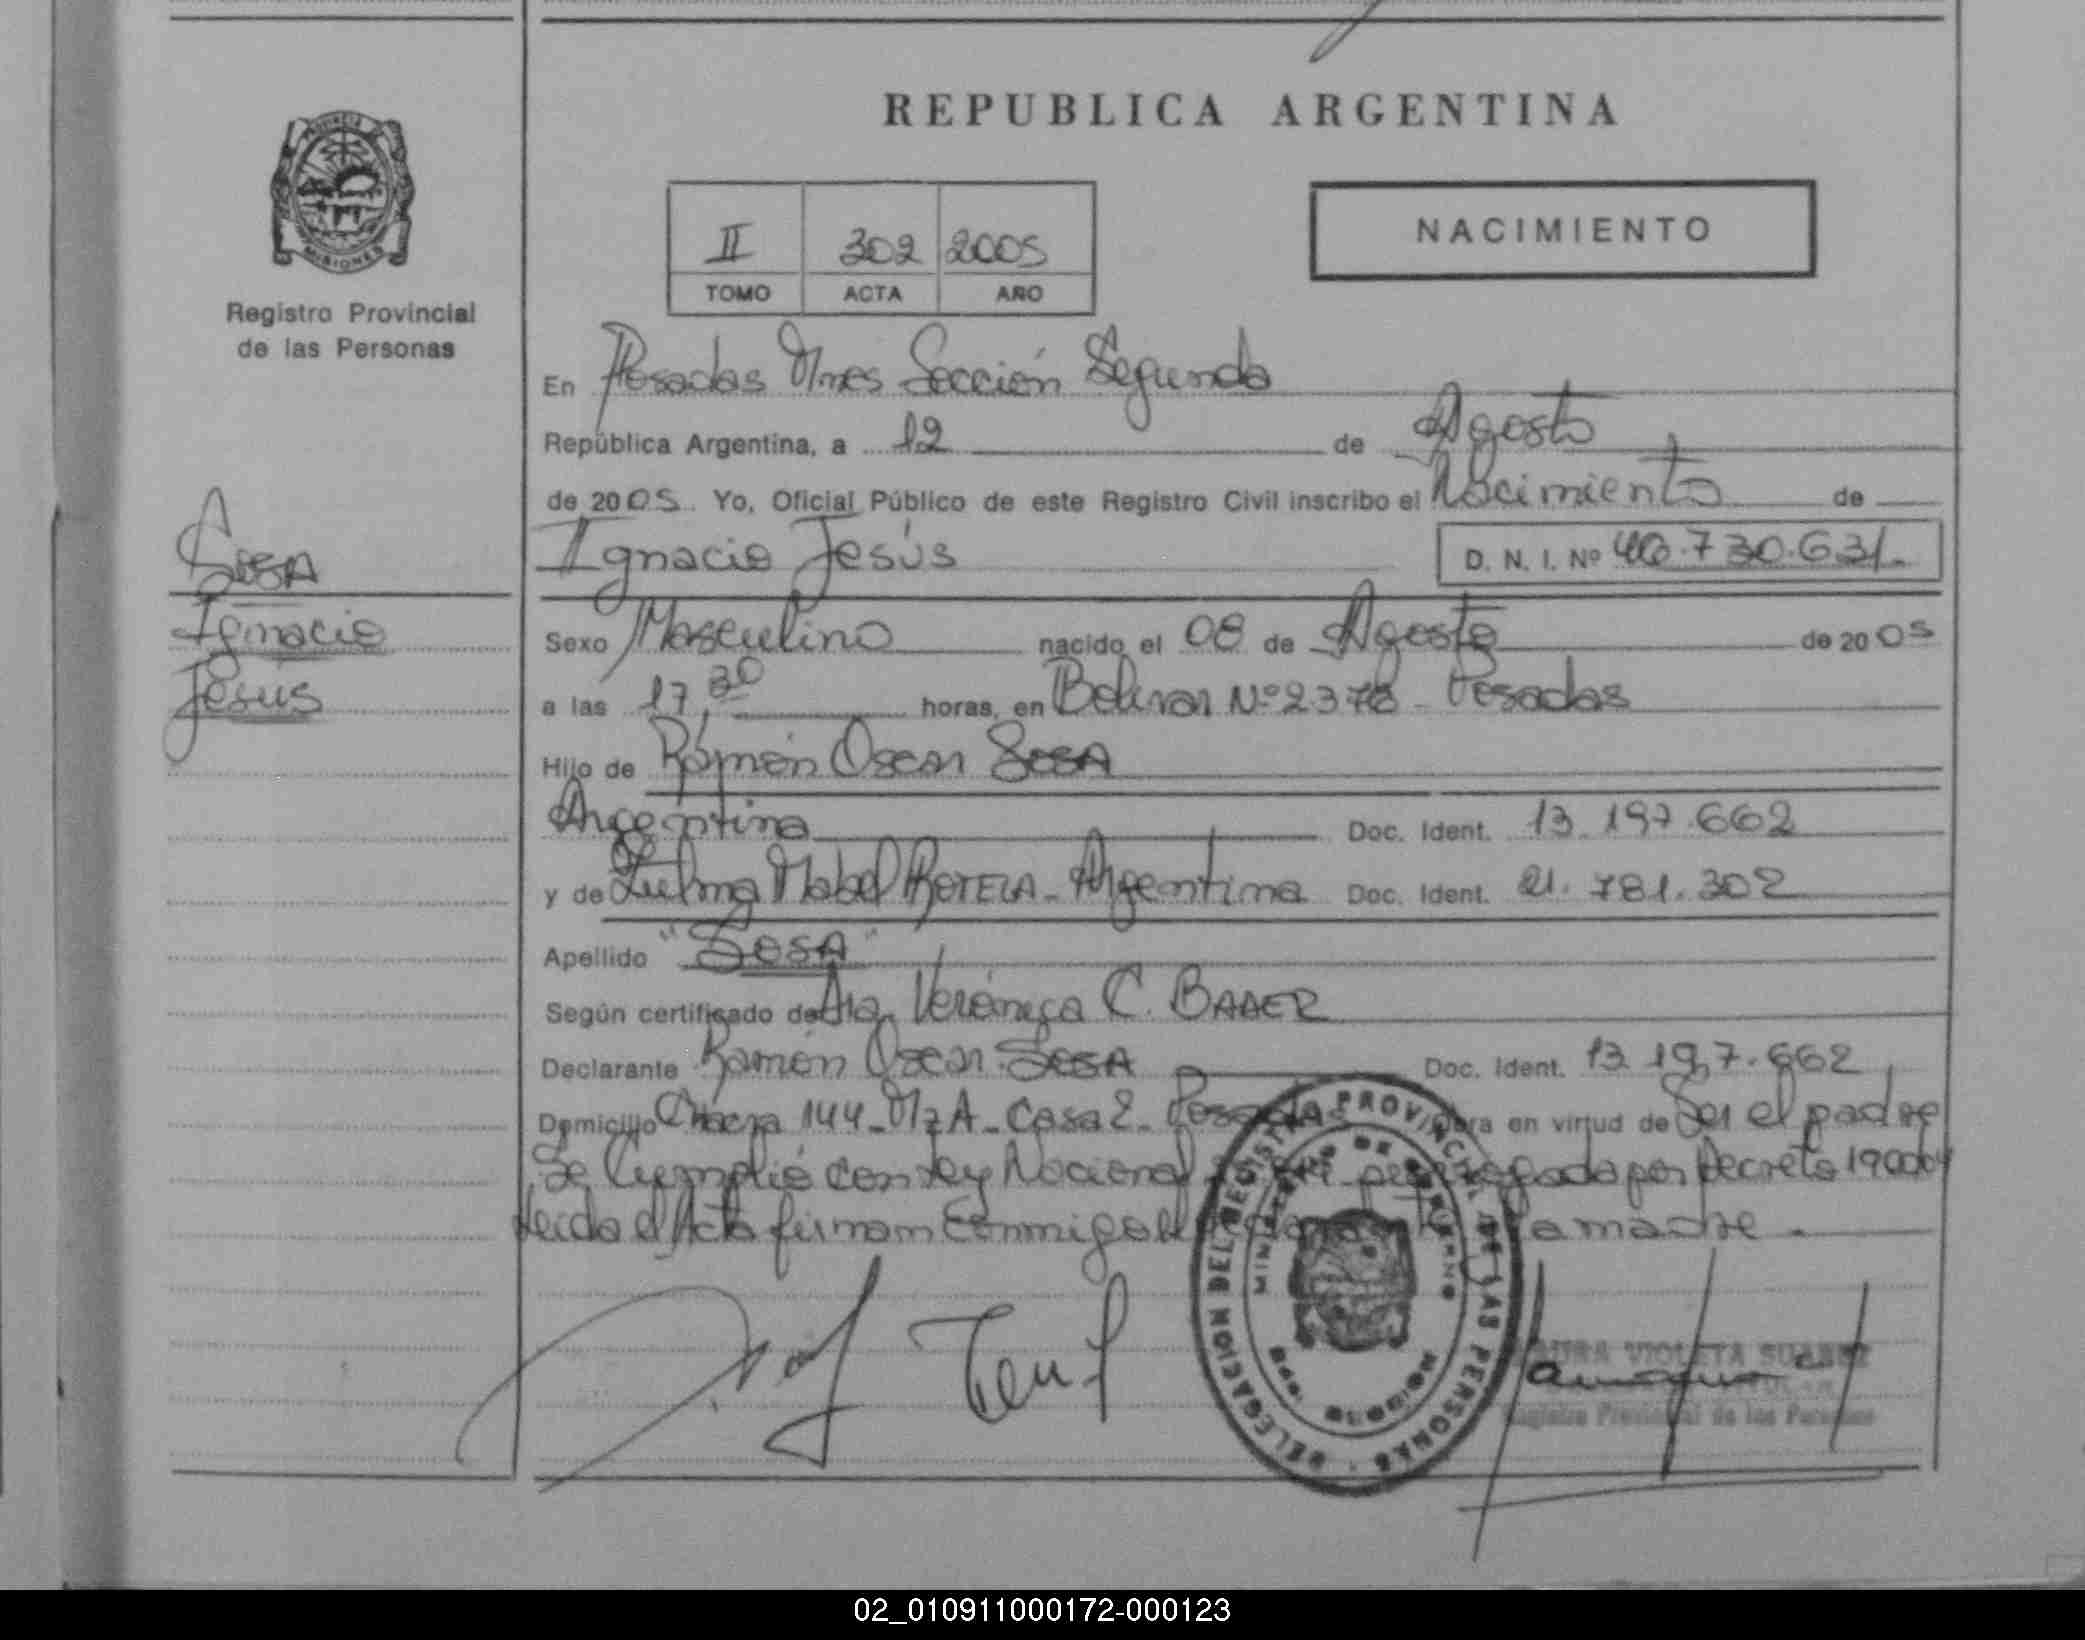 REPUBLICA ARGENTINA
NACIMIENTO
II 302 2005
TOMO ACTA AÑO
PROVINCIA
MISIONES
Registro Provincial
de las Personas
En Posadas Mnes Sección Segunda
República Argentina, a 12 de Agosto
de 2005 Yo, Oficial Público de este Registro Civil inscribo el Nacimiento de
Ignacio Jesús D. N. I. Nº 46.730.631.
Sosa
Ignacio
Jesús
Sexo Masculino nacido el 08 de Agosto de 2005
a las 17,30 horas, en Bolivar Nº 2376 - Posadas
Hijo de Ramón Oscar SOSA
Argentina Doc. Ident. 13.197.662
y de Zulma Mabel ROTELA - Argentina Doc. Ident. 21.781.302
Apellido "SOSA"
Según certificado de Dra. Verónica C. BAAER
Declarante Ramón Oscar SOSA Doc. Ident. 13.197.662
Domicilio Chacra 144 - Mz A - Casa 2 - Posadas Obra en virtud de Ser el padre
Se Cumplió con Ley Nacional prorrogada por Decreto
Leida el Acta firman Conmigo el la madre.
DELEGACION DEL REGISTRO PROVINCIAL DE LAS PERSONAS
MINISTERIO DE GOBIERNO
MISIONES
LAURA VIOLETA SUAREZ
Registro Provincial de las Personas
02_010911000172-000123